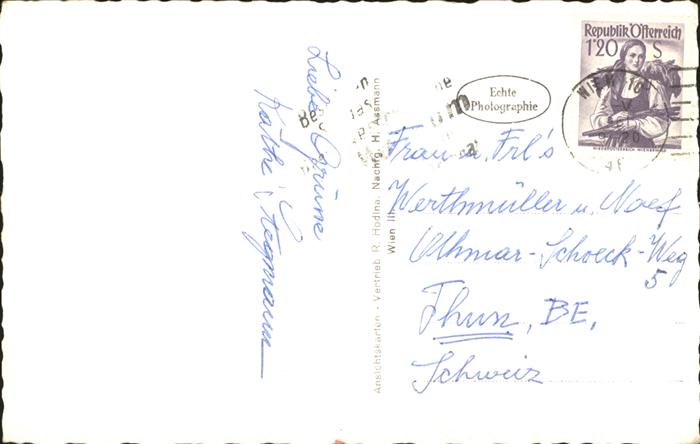 Liebe Grüne
Käthe Stegmann
Ansichtskarten - Vertrieb R. Hodina, Nachfg. H. Assmann
Wien III
Echte
Photographie
Republik Österreich
1'20 S
WIEN
Frau u. Frl's
Werthmüller u. Noef
Othmar-Schoeck-Weg
5
Thun, BE,
Schweiz